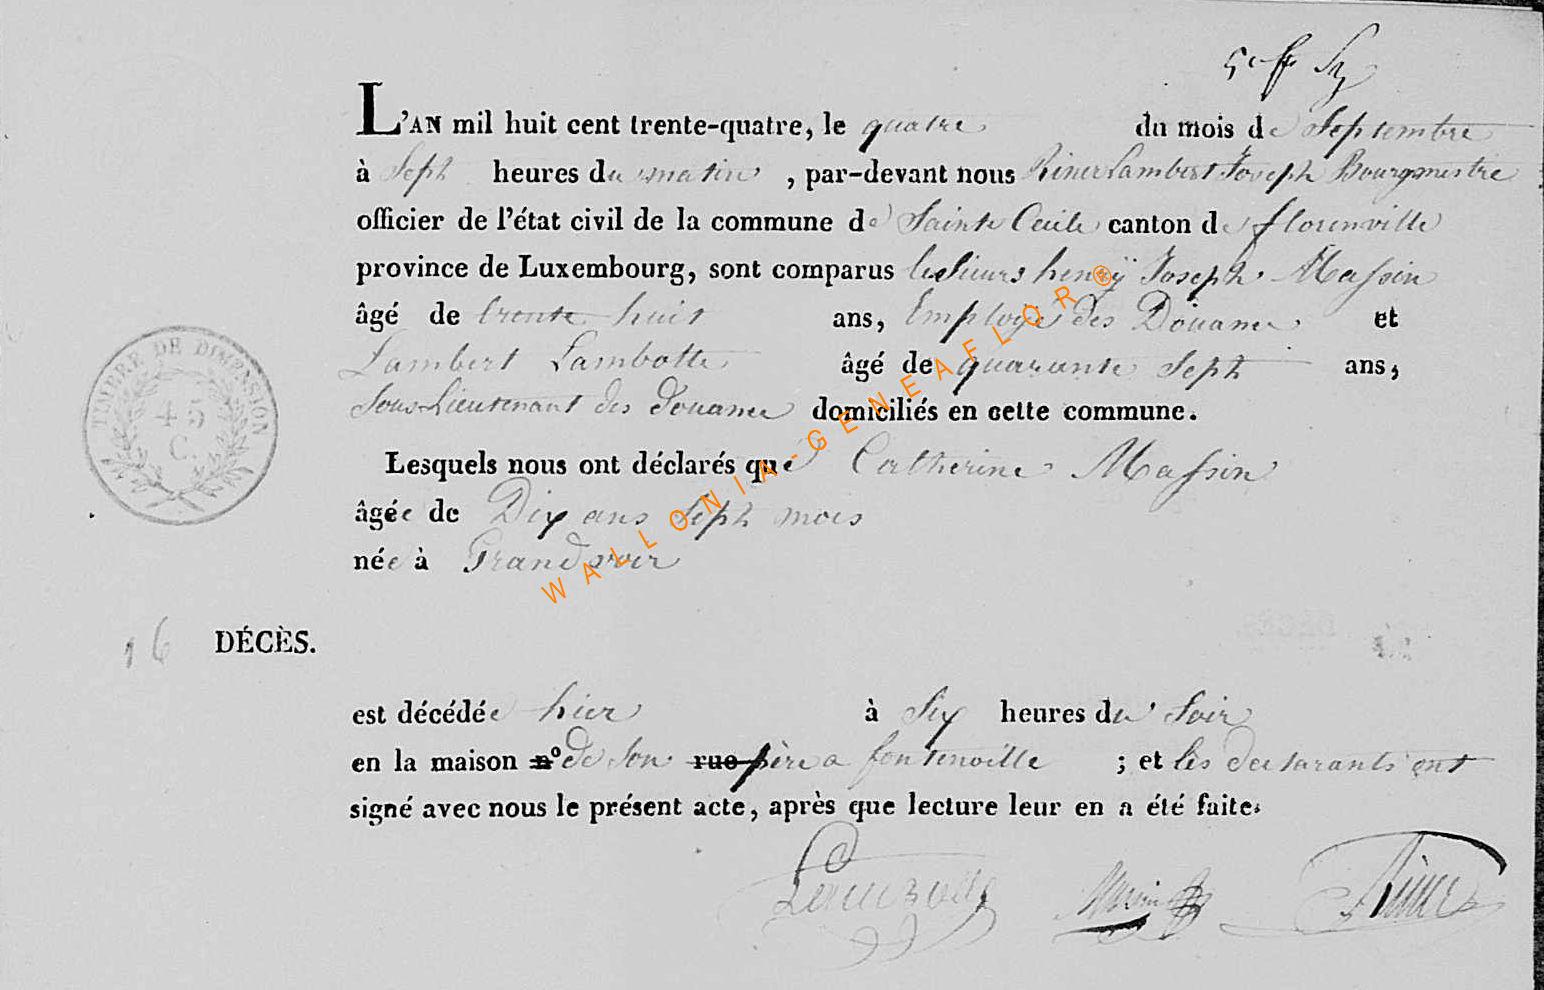 L'AN mil huit cent trente-quatre, le quatre du mois de Septembre
à Sept heures du matin, par-devant nous Riner Lambert Joseph Bourgmestre
officier de l'état civil de la commune de Sainte Cecile canton de florenville
province de Luxembourg, sont comparus les Sieurs henrÿ Joseph Massin
âgé de trente huit ans, Employé des Douanes et
Lambert Lambotte âgé de quarante Sept ans,
Sous-Lieutenant des Douanes domiciliés en cette commune.
TIMBRE DE DIMENSION
45
C.
Lesquels nous ont déclarés que Catherine Massin
âgée de Dix ans Sept mois
née à Grandvoir
WALLONIA-GENEAFLOR®
16 DÉCÈS.
est décédée hier à Six heures du Soir
en la maison n° de son rue père a fontenoille ; et les declarants ont
signé avec nous le présent acte, après que lecture leur en a été faite.
Lambotte Massin Riner